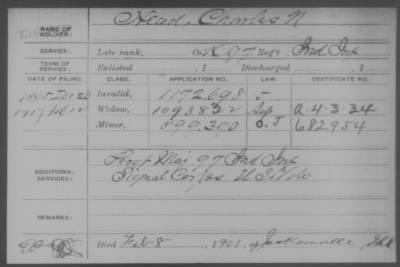 NAME OF SOLDIER: Head, Charles N
SERVICE: Late rank, Co K 97 Reg't Ind Inf
TERM OF SERVICE: Enlisted , 1 Discharged , 1
DATE OF FILING. CLASS. APPLICATION NO. LAW. CERTIFICATE NO.
Invalid, 1172698 —
1917 Feb 12 Widow, 1093832 A-4-3-34
Minor, 899,300 O. J 682954
ADDITIONAL SERVICES: 97 Ind Inf
Signal Corps U S Vols
REMARKS:
Died Feb 8 , 1901, at Jacksonville, Ills